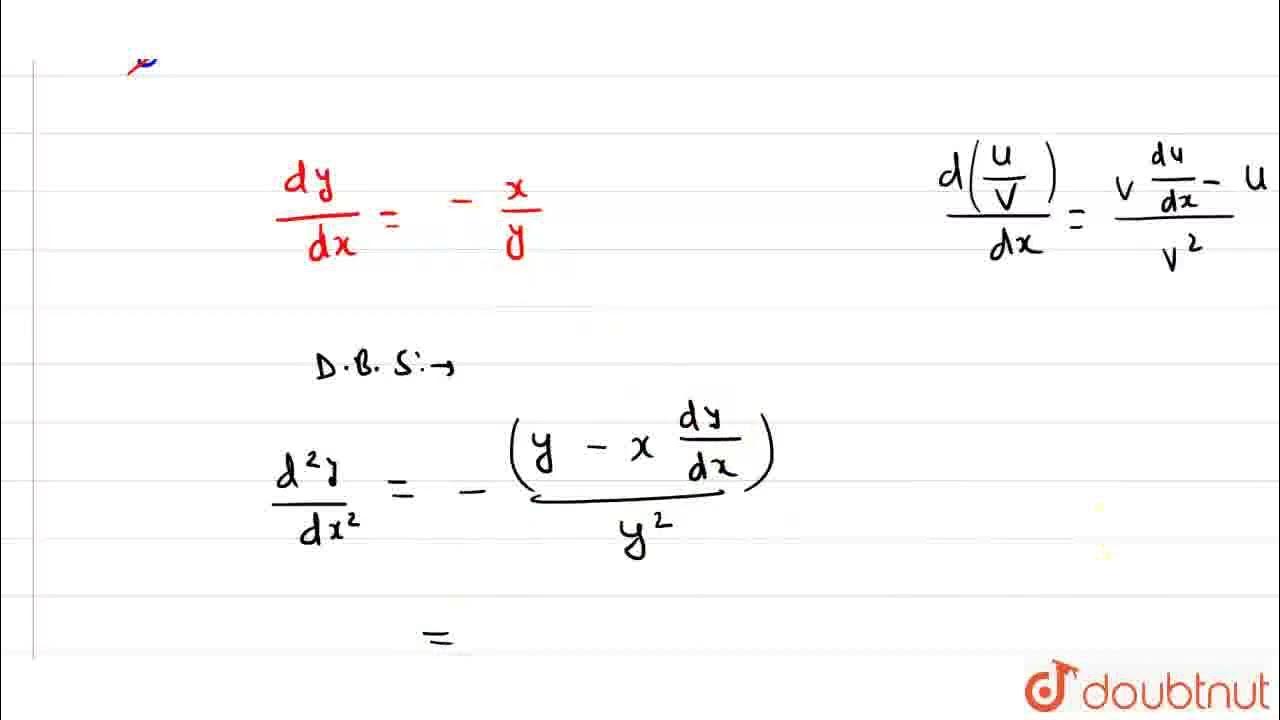 dy/dx = - x/y
d(u/v)/dx = (v du/dx - u)/v²
D.B.S:→
d²y/dx² = - (y - x dy/dx)/y²
=
doubtnut